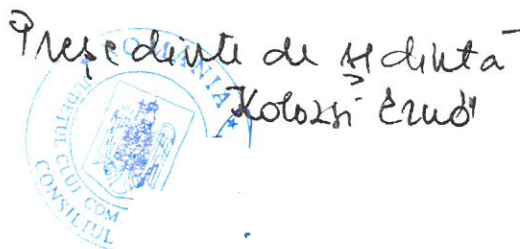 Președinte de ședință
Kolozsi Ernő
ROMÂNIA ★
JUDEȚUL CLUJ COM
CONSILIUL